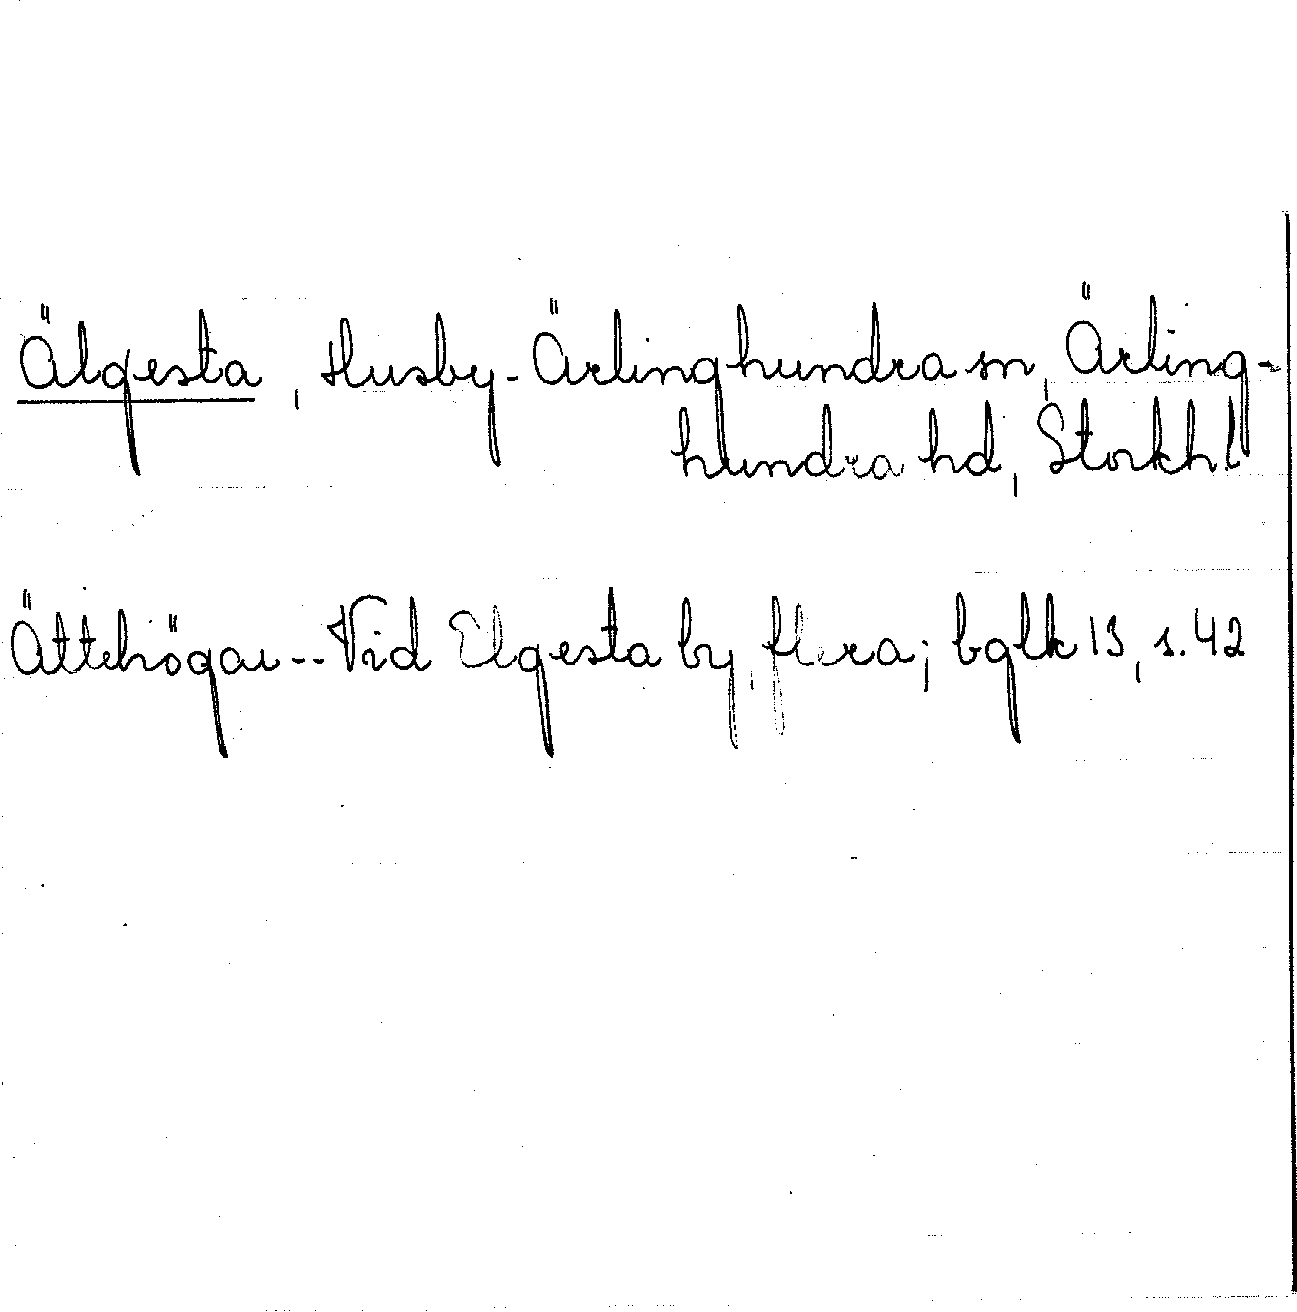 Älgesta, Husby-Ärlinghundra sn, Ärling-
hundra hd, Stockhl
Ättehögar--Vid Elgesta by, flera; bglk 13, s. 42